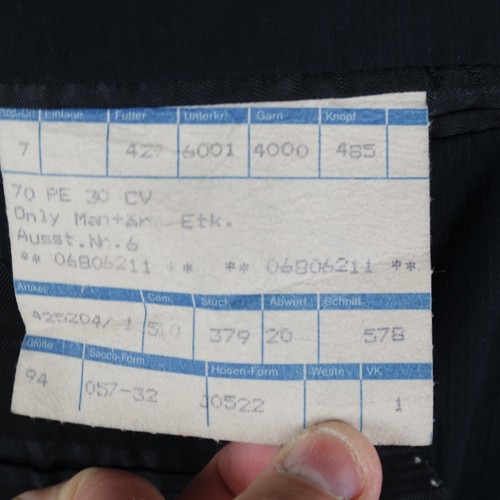 Einlage Futter Unterkr. Garn Knopf
7 429 6001 4000 485
70 PE 30 CV
Only Etk.
Ausst.Nr.6
** 06806211 ** ** 06806211 **
Artikel Com. Stück Abwurf Schnitt
510 379 20 578
Größe Sacco-Form Hosen-Form Weste VK
94 057-32 30522 1